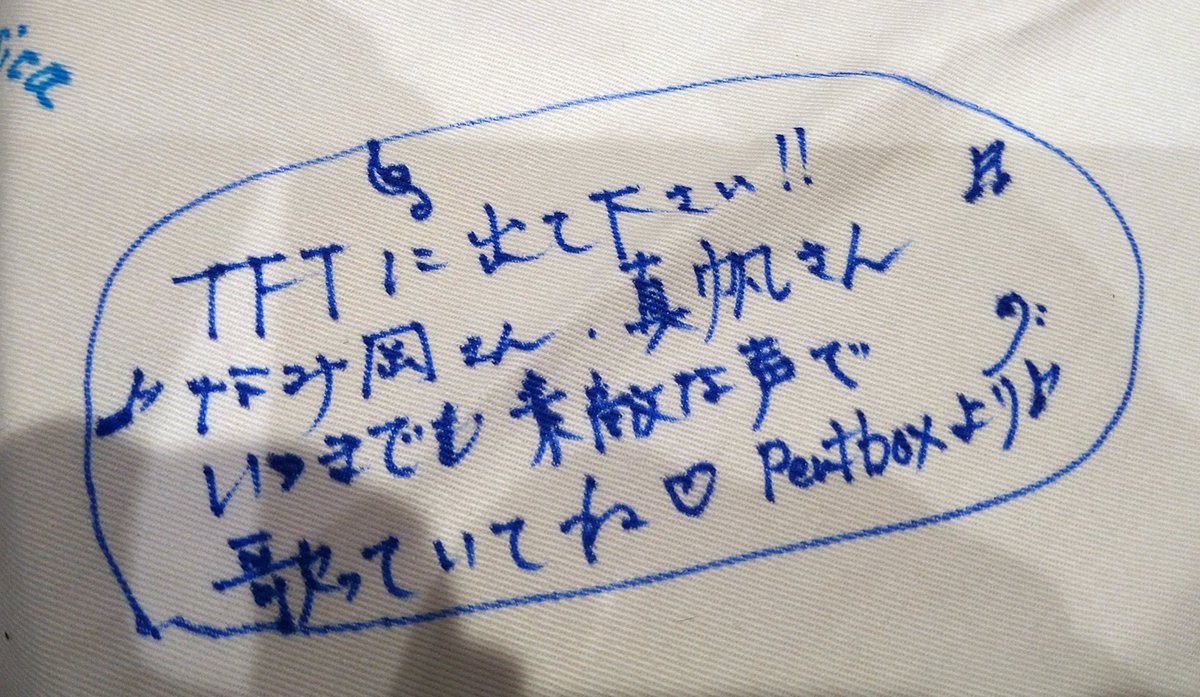 ica
TFTに出て下さい!!
岡さん・真帆さん
いつまでも素敵な声で
歌っていてね♡ Pentboxより♪